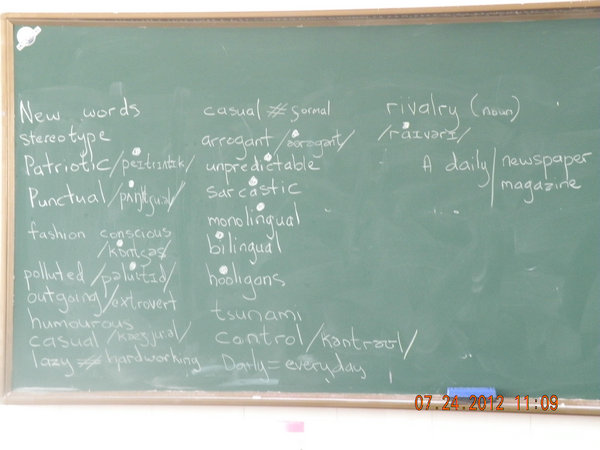 New words
stereotype
Patriotic/peɪtrɪɒtɪk/
Punctual/pʌŋktʃʊəl/
fashion conscious
/kɒnʃəs/
polluted/pəluːtɪd/
outgoing/extrovert
humourous
casual/kæʒjʊəl/
lazy ≠ hardworking
casual ≠ formal
arrogant/ærəgənt/
unpredictable
sarcastic
monolingual
bilingual
hooligans
tsunami
control/kəntrəʊl/
Daily = everyday
rivalry (noun)
/raɪvərɪ/
A daily/newspaper
magazine
07.24.2012 11:09